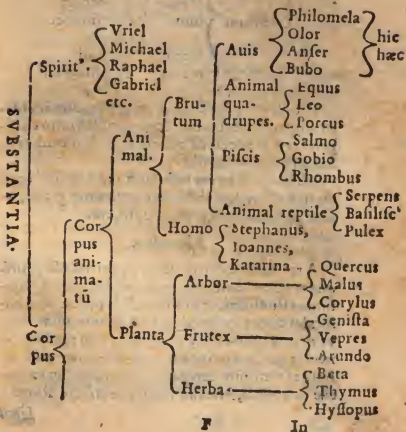 SVBSTANTIA.
Spiritꝰ.
Vriel
Michael
Raphael
Gabriel
etc.
Cor
pus
Cor
pus
ani-
matũ
Ani
mal.
Bru-
tum
Auis
Philomela
Olor
Anſer
Bubo
hic
hæc
Animal
qua-
drupes.
Equus
Leo
Porcus
Piſcis
Salmo
Gobio
Rhombus
Animal reptile
Serpens
Baſiliſcꝰ
Pulex
Homo
Stephanus,
Ioannes,
Katarina
Planta
Arbor
Quercus
Malus
Corylus
Frutex
Geniſta
Vepres
Arundo
Herba
Beta
Thymus
Hyſſopus
F
In